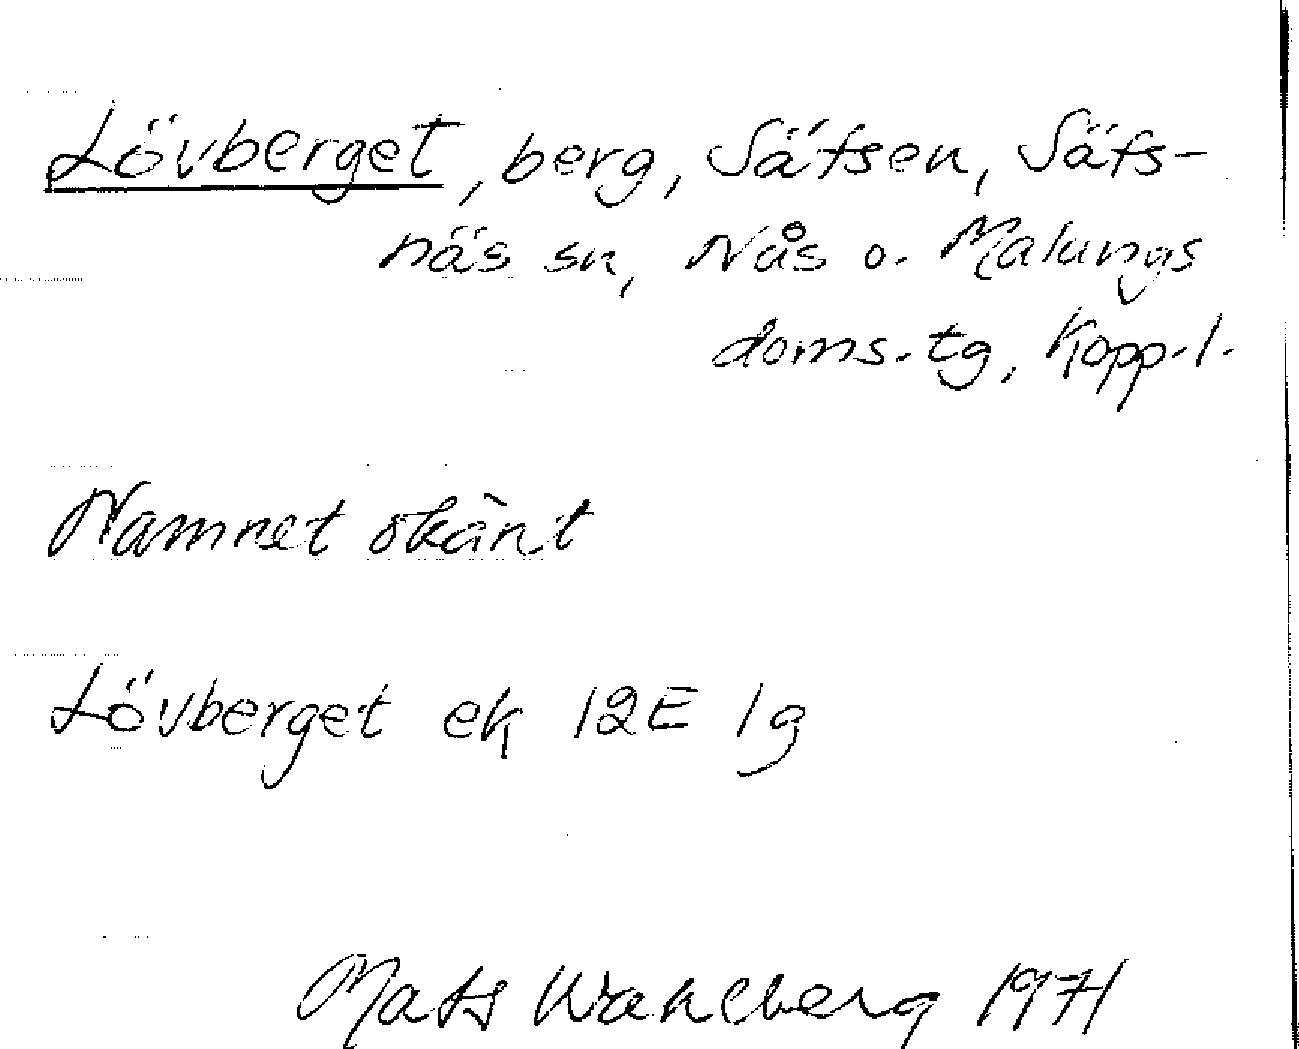 Lövberget, berg, Säfsen, Säfs-
näs sn, Nås o. Malungs
doms.tg, Kopp.l.
Namnet okänt
Lövberget ek 12E 1g
Mats Wahlberg 1971